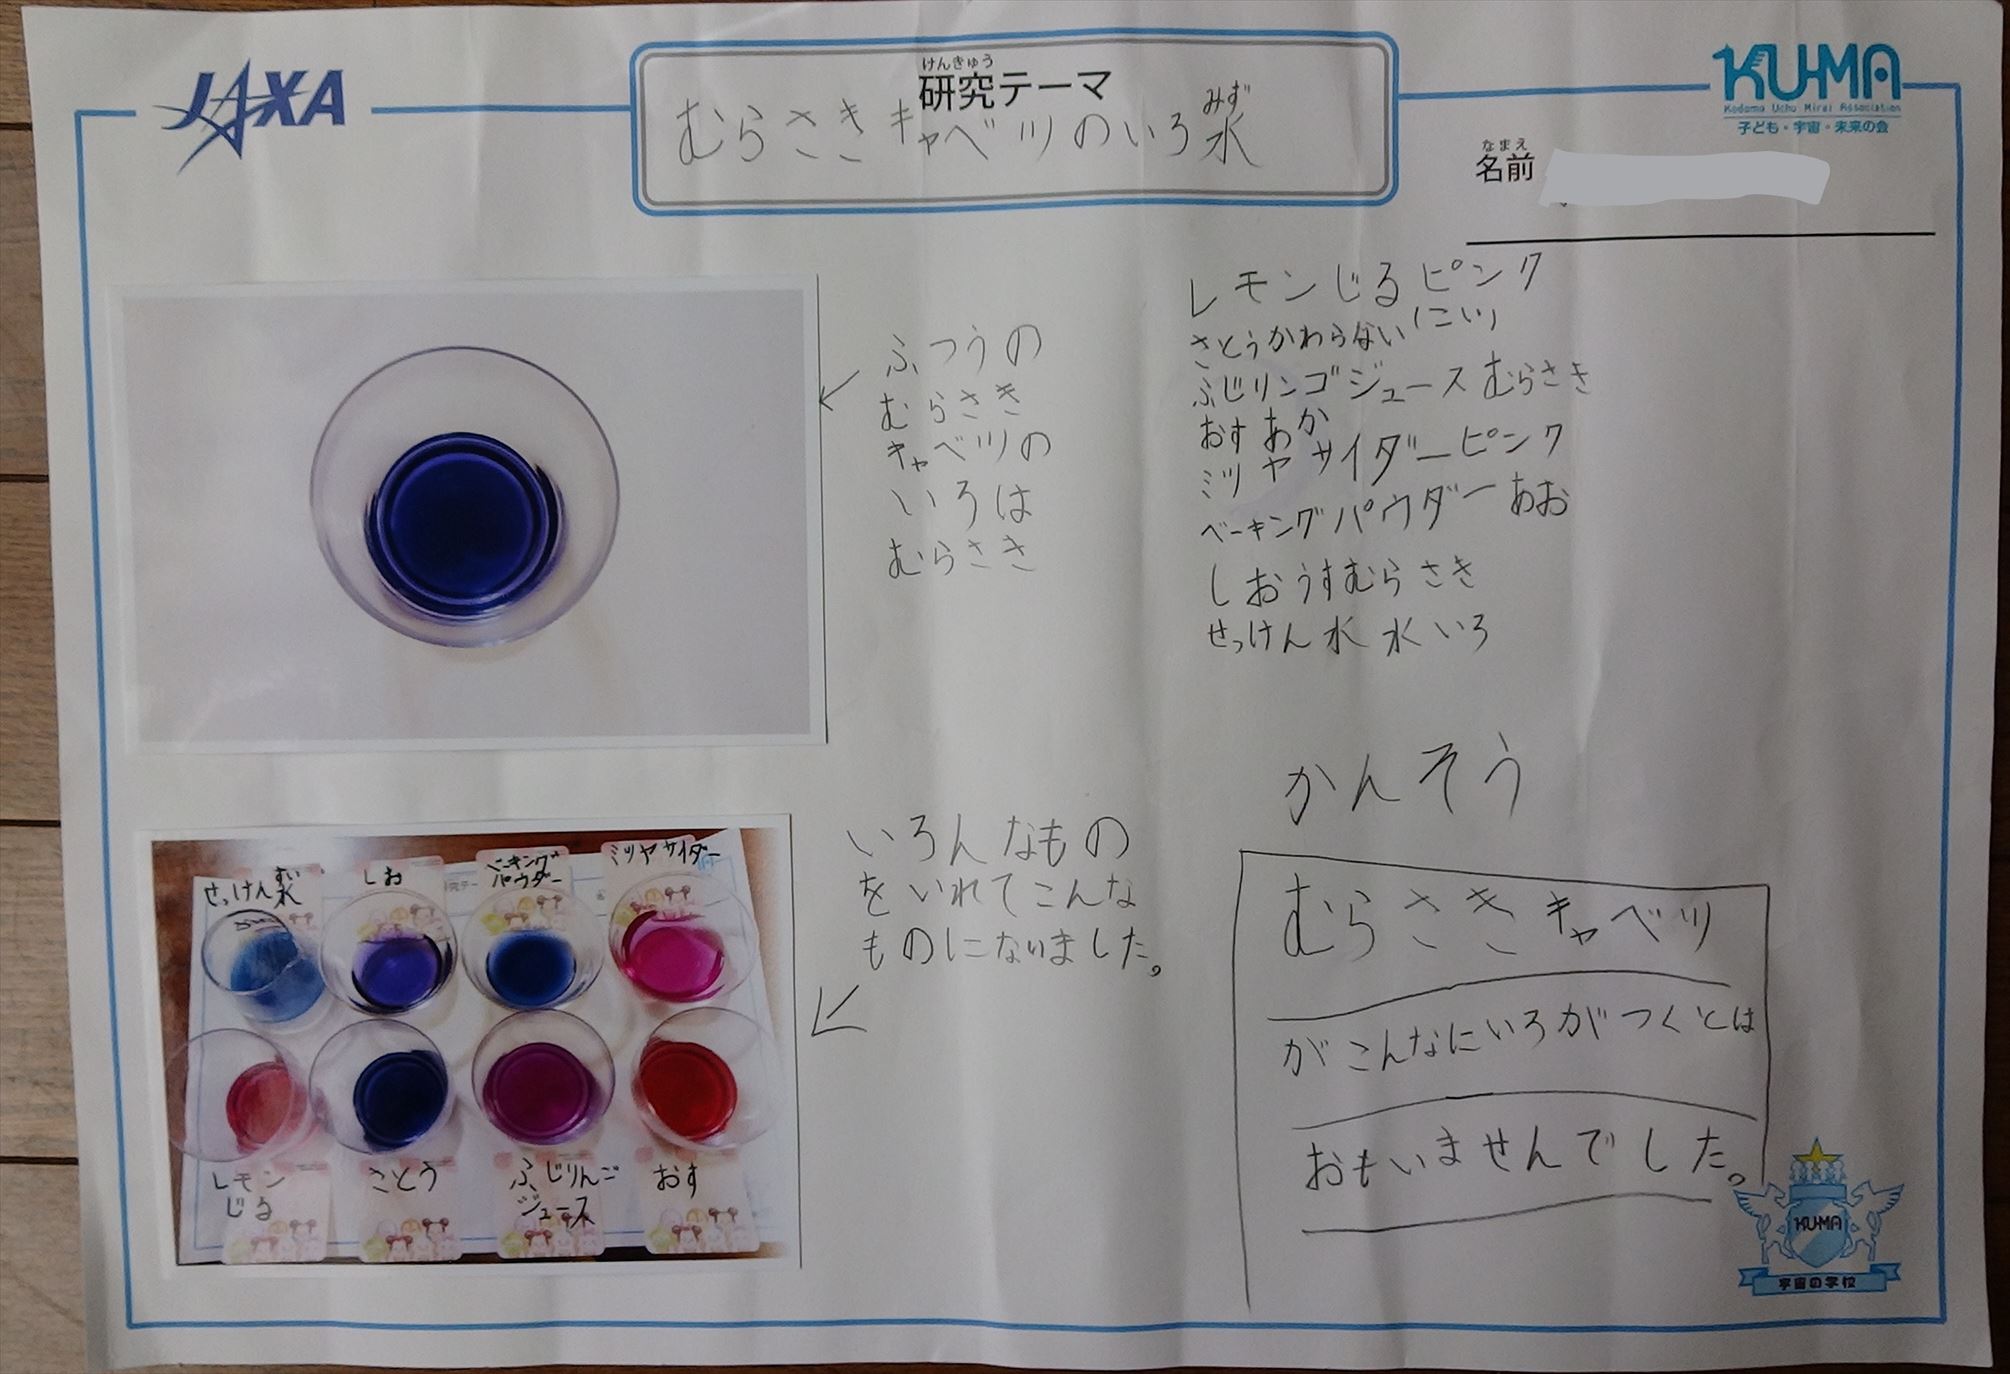 JAXA
けんきゅう
研究テーマ
むらさきキャベツのいろ水
みず
KU-MA
Kodomo Uchu Mirai Association
子ども・宇宙・未来の会
なまえ
名前
ふつうの
むらさき
キャベツの
いろは
むらさき
レモンじるピンク
さとうかわらない(こい)
ふじリンゴジュースむらさき
おすあか
ミツヤサイダーピンク
ベーキングパウダーあお
しおうすむらさき
せっけん水 水いろ
いろんなもの
をいれてこんな
ものにないました。
せっけん水
しお
ベーキング
パウダー
ミツヤサイダー
レモン
じる
さとう
ふじりんご
ジュース
おす
かんそう
むらさきキャベツ
がこんなにいろがつくとは
おもいませんでした。
KU-MA
宇宙の学校